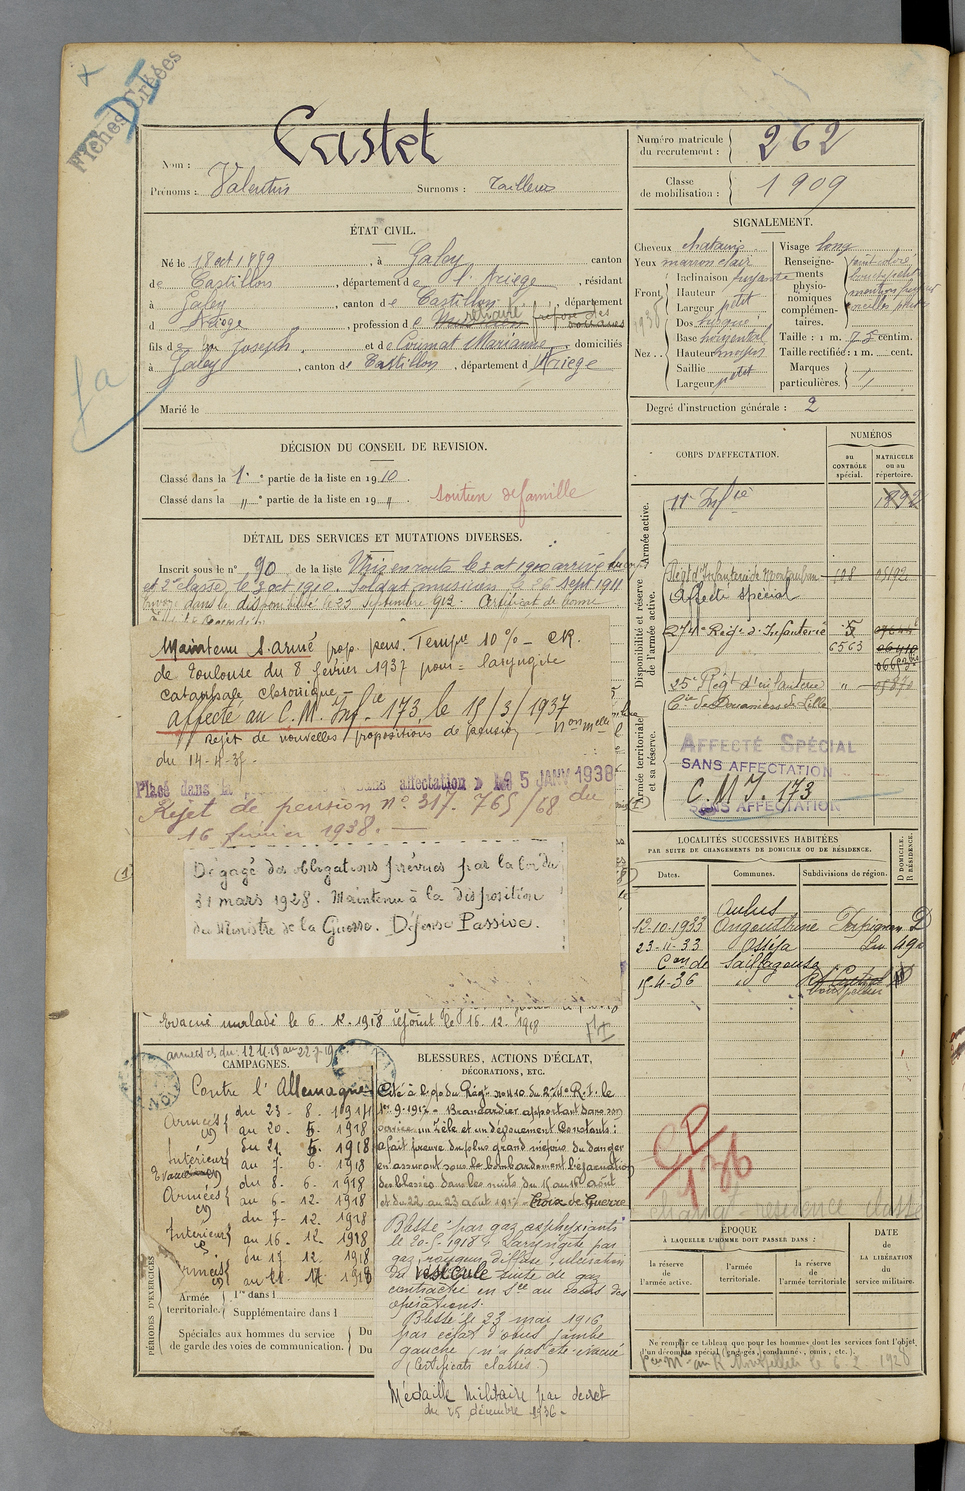 Fiches Créées
Nom : Castet
Prénoms : Valentin Surnoms :
Numéro matricule
du recrutement : 262
Classe
de mobilisation : 1909
ÉTAT CIVIL.
Né le 18 oct 1889, à Galey canton
de Castillon, département de l'Ariège, résidant
à Galey, canton de Castillon, département
d Ariège, profession de
fils de Joseph et de Marianne, domiciliés
à Galey, canton de Castillon, département d Ariège
Marié le
SIGNALEMENT.
Cheveux chatains
Yeux marron clair
Front
Inclinaison fuyante
Hauteur
Largeur petit
Nez
Dos busqué
Base horizontal
Hauteur moyen
Saillie
Largeur petit
Visage long
Renseignements
physionomiques
complémentaires.
Taille : 1 m. centim.
Taille rectifiée : 1 m. cent.
Marques
particulières.
Degré d'instruction générale : 2
DÉCISION DU CONSEIL DE REVISION.
Classé dans la 1e partie de la liste en 1910.
Classé dans la " e partie de la liste en 19 ".
soutien de famille
DÉTAIL DES SERVICES ET MUTATIONS DIVERSES.
Inscrit sous le n° 90 de la liste Mis en route le 3 oct 1910 arrivé au corps
et 2e classe le 3 oct 1910. Soldat musicien le 26 sept 1911
Envoyé dans la disponibilité le 25 septembre 1912. Certificat de bonne
Maintenu S. armé prop. pens. Tempre 10% - CR.
de Toulouse du 8 février 1937 pour : laryngite
catarrhale chronique -
affecté au C. M. Inf. 173, le 15/3/1937
Rejet de nouvelles propositions de pension
du 14-4-37.
Placé dans la sans affectation 5 JANV 1938
Rejet de pension n° 317. 765/68 du
16 février 1938. -
Dégagé des obligations prévues par la loi du
31 mars 1928. Maintenu à la disposition
du Ministre de la Guerre. Défense Passive.
Evacué malade le 6. 12. 1918 rejoint le 16. 12. 1918
CORPS D'AFFECTATION.
NUMÉROS
au
CONTRÔLE
spécial.
MATRICULE
ou au
répertoire.
Armée active.
11e Infie
1892
Disponibilité et réserve
de l'armée active.
Régt d'Infanterie de Montauban 108
Affecté spécial
274e Régt d'Infanterie 5
6563
25e Régt d'infanterie "
Cie de Douaniers de Lille
Armée territoriale
et sa réserve.
AFFECTÉ SPÉCIAL
SANS AFFECTATION
C. M. I. 173
SANS AFFECTATION
LOCALITÉS SUCCESSIVES HABITÉES
PAR SUITE DE CHANGEMENTS DE DOMICILE OU DE RÉSIDENCE.
Dates. Communes. Subdivisions de région. D DOMICILE. R RÉSIDENCE.
Aulus
12-10-1933 Angoustrine Perpignan D
23-11-33 Osséja
Con de Saillagouse
15-4-36 "
CP
136
CAMPAGNES.
Contre l'Allemagne
Armées du 23 - 8. 1914
au 20 - 5. 1918
Intérieur du 21 5. 1918
au 7. 6. 1918
Armées du 8. 6. 1918
au 6 - 12. 1918
Intérieur du 7 - 12. 1918
au 16 - 12. 1918
Armées du 17. 12. 1918
PÉRIODES D'EXERCICES
Armée
territoriale.
1re dans l
Supplémentaire dans l
Spéciales aux hommes du service
de garde des voies de communication.
Du
Du
BLESSURES, ACTIONS D'ÉCLAT,
DÉCORATIONS, ETC.
Cité à l'o/ du Régt no 410 du 274e R. I. le
1er-9-1917 - Brancardier apportant dans son
service un zèle et un dévouement constants ;
a fait preuve du plus grand mépris du danger
en assurant sous le bombardement l'évacuation
des blessés dans les nuits du 15 au 16 août
et du 22 au 23 août 1917 - Croix de Guerre
Blessé par gaz asphyxiants
le 20-5-1918 Laryngite par
gaz, rougeur diffuse, ulcération
du suite de gaz
contracté en Sce au cours des
opérations.
Blessé le 23 mai 1916
par éclat d'obus jambe
gauche (n'a pas été évacué
(Certificats classés)
Médaille Militaire par décret
du 25 décembre 1936 -
ÉPOQUE
À LAQUELLE L'HOMME DOIT PASSER DANS :
la réserve
de
l'armée active.
l'armée
territoriale.
la réserve
de
l'armée territoriale
DATE
de
la LIBÉRATION
du
service militaire.
Ne remplir ce tableau que pour les hommes dont les services font l'objet
d'un décompte spécial (engagés, condamnés, omis, etc.).